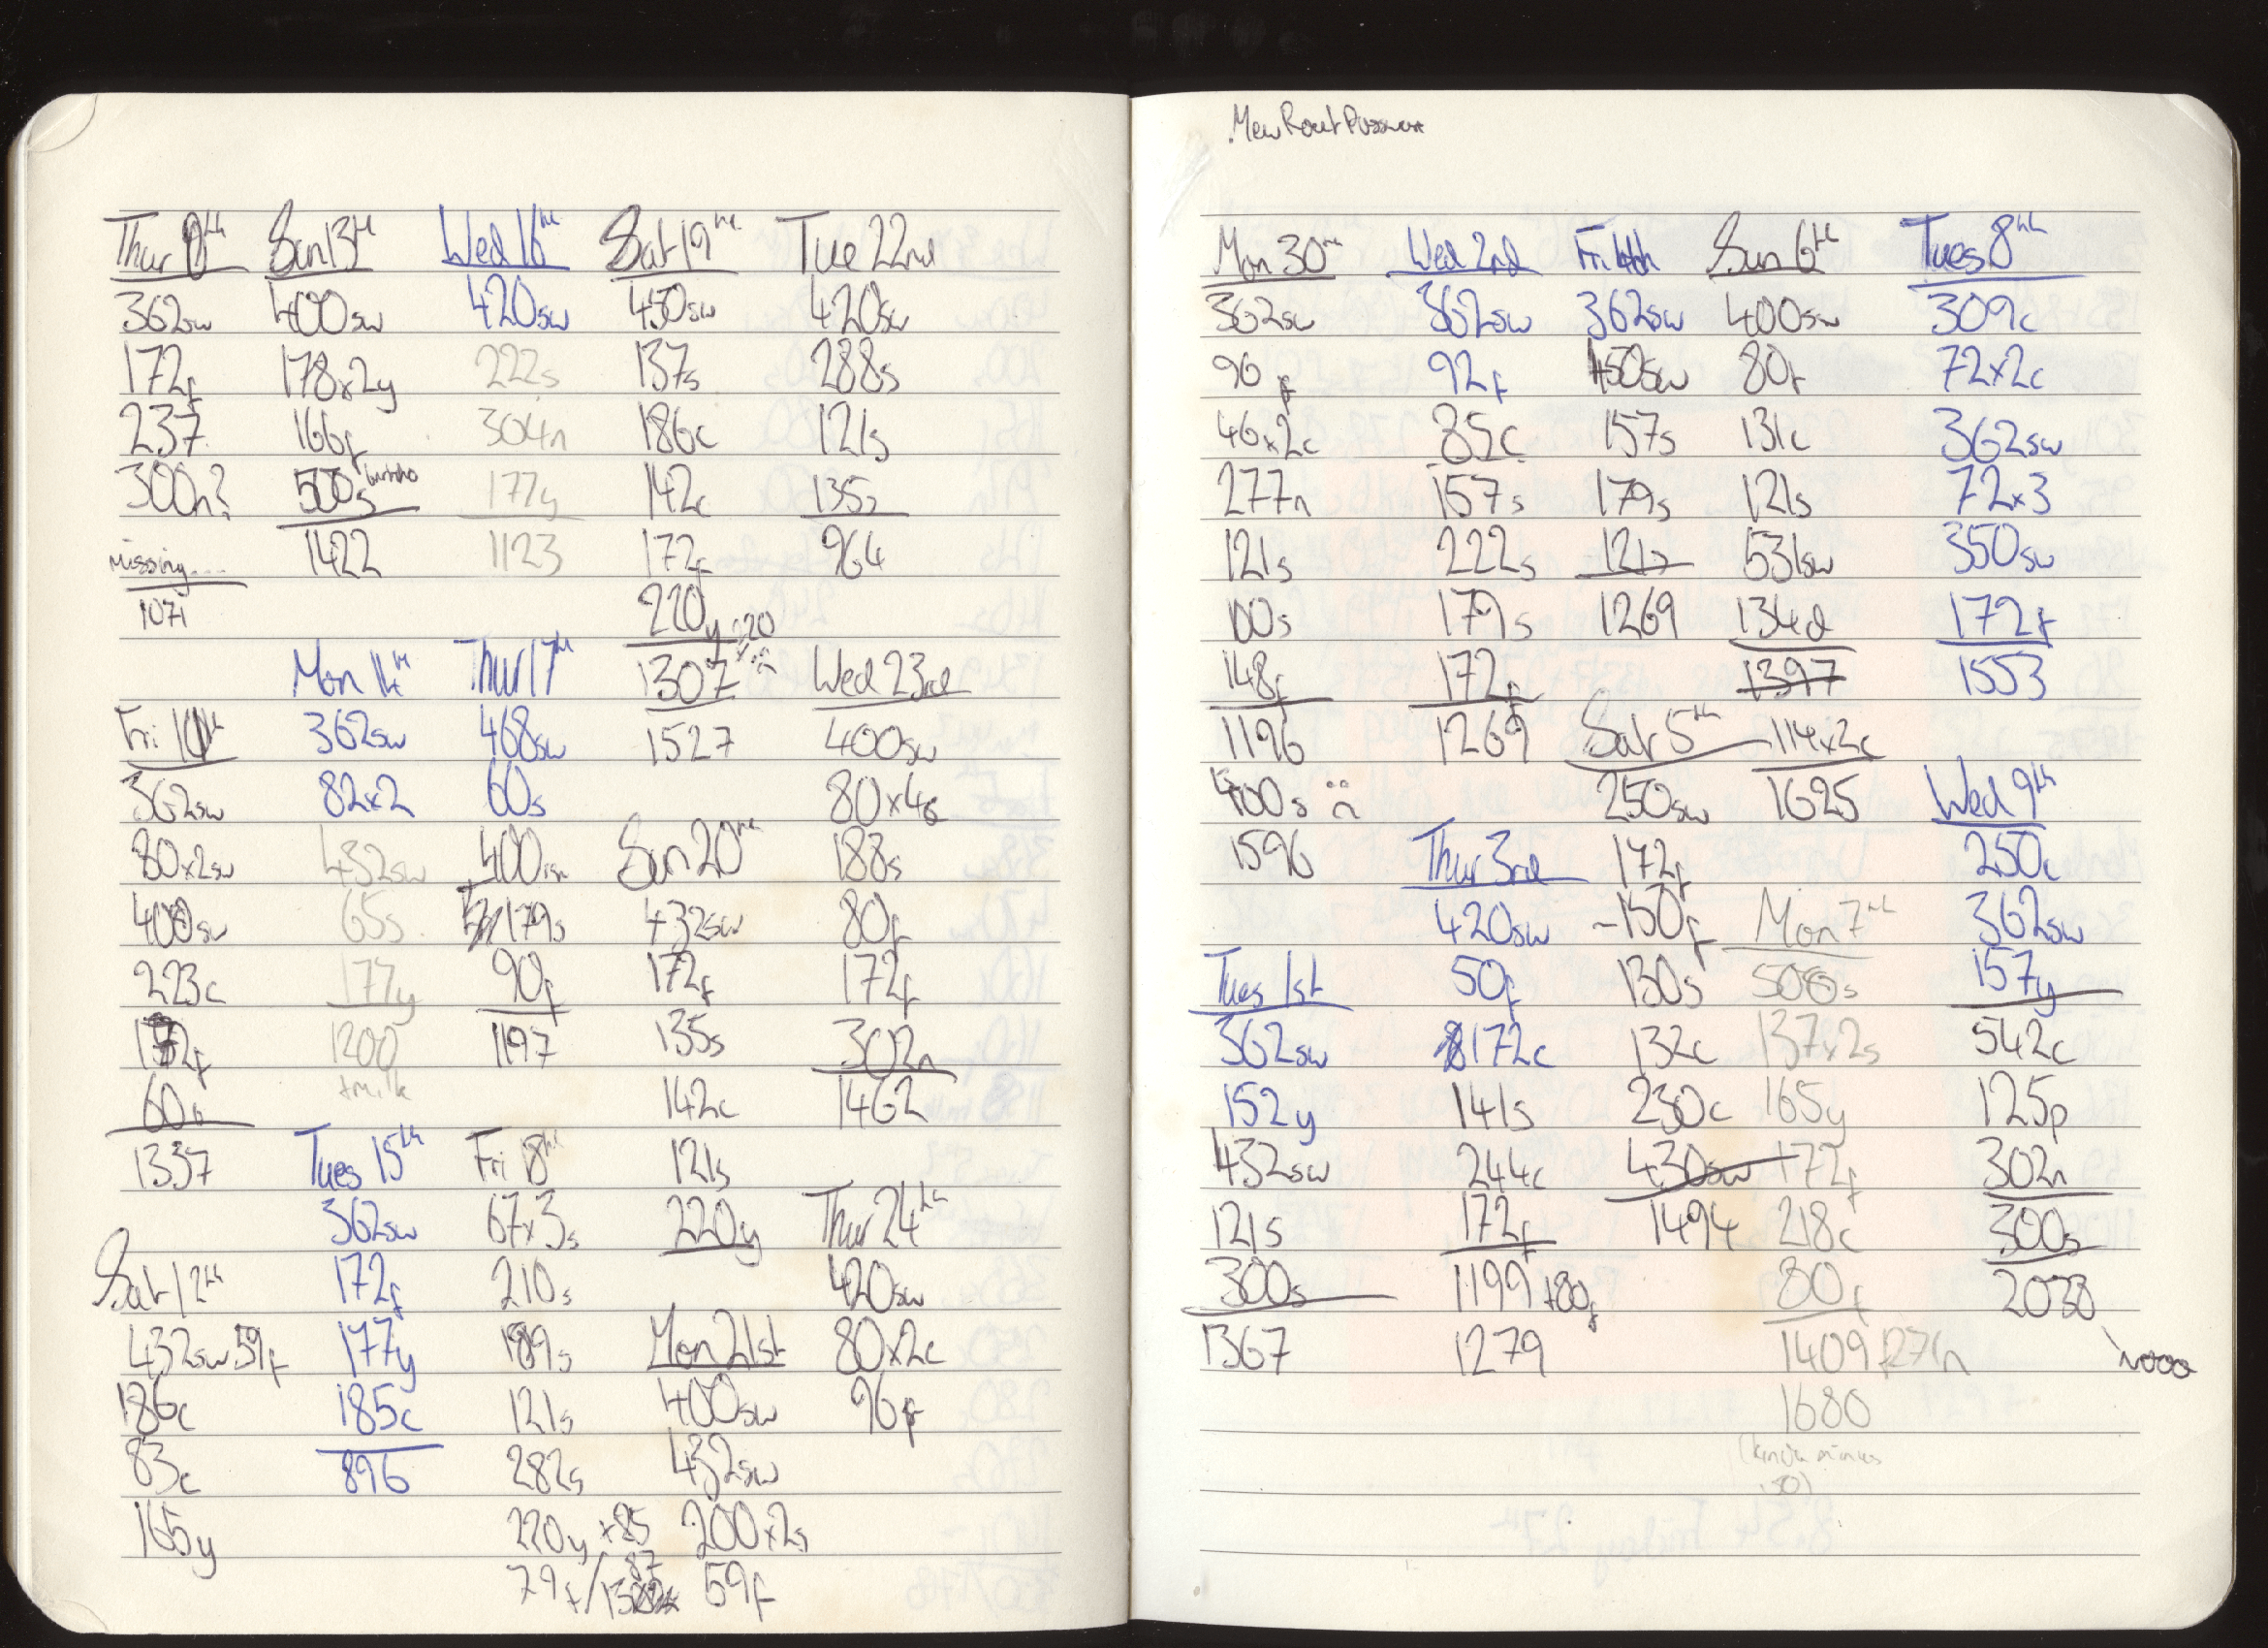 Thur
362sw
172f
237
300n?
missing...
1071
Fri
362sw
80x2sw
400sw
223c
172f
60s
1337
Sat 12th
432sw 59f
186c
83c
165y
Sun 13th
400sw
178x2y
166f
500s burrito
1422
Mon 14th
362sw
82x2
432sw
65s
177y
1200
+milk
Tues 15th
362sw
172f
177y
185c
896
Wed 16th
420sw
222s
304n
177y
1123
Thur 17th
468sw
60s
400
179s
90f
1197
Fri 18th
67x3s
210s
189s
121s
282s
220y +85
79f/
Sat 19th
450sw
137s
186c
142c
172f
220y
1307
1527
Sun 20th
432sw
172f
135s
142c
121s
220y
Mon 21st
400sw
432sw
200x2s
59f
Tue 22nd
420sw
288s
121s
135s
964
Wed 23rd
400sw
80x4s
188s
80f
172f
302n
1462
Thur 24th
420sw
80x2c
96f
Mon 30th
362sw
96f
46x2c
277n
121s
100s
148f
1196
400s
1596
Tues 1st
362sw
152y
432sw
121s
300s
1367
Wed 2nd
362sw
92f
85c
157s
222s
179s
172f
1269
Thur 3rd
420sw
50f
172c
141s
244c
172f
1199 +80f
1279
Fri 4th
362sw
450sw
157s
179s
121s
1269
Sat 5th
250sw
172f
-150f
130s
132c
230c
430sw
1494
Sun 6th
400sw
80f
131c
121s
531sw
134d
1397
114x2c
1625
Mon 7th
508s
137x2s
165y
172f
218c
80f
1409 +271n
1680
(kinda minus
150)
Tues 8th
309c
72x2c
362sw
72x3
350sw
172f
1553
Wed 9th
250c
362sw
157y
542c
125p
302n
300s
2038
nooo